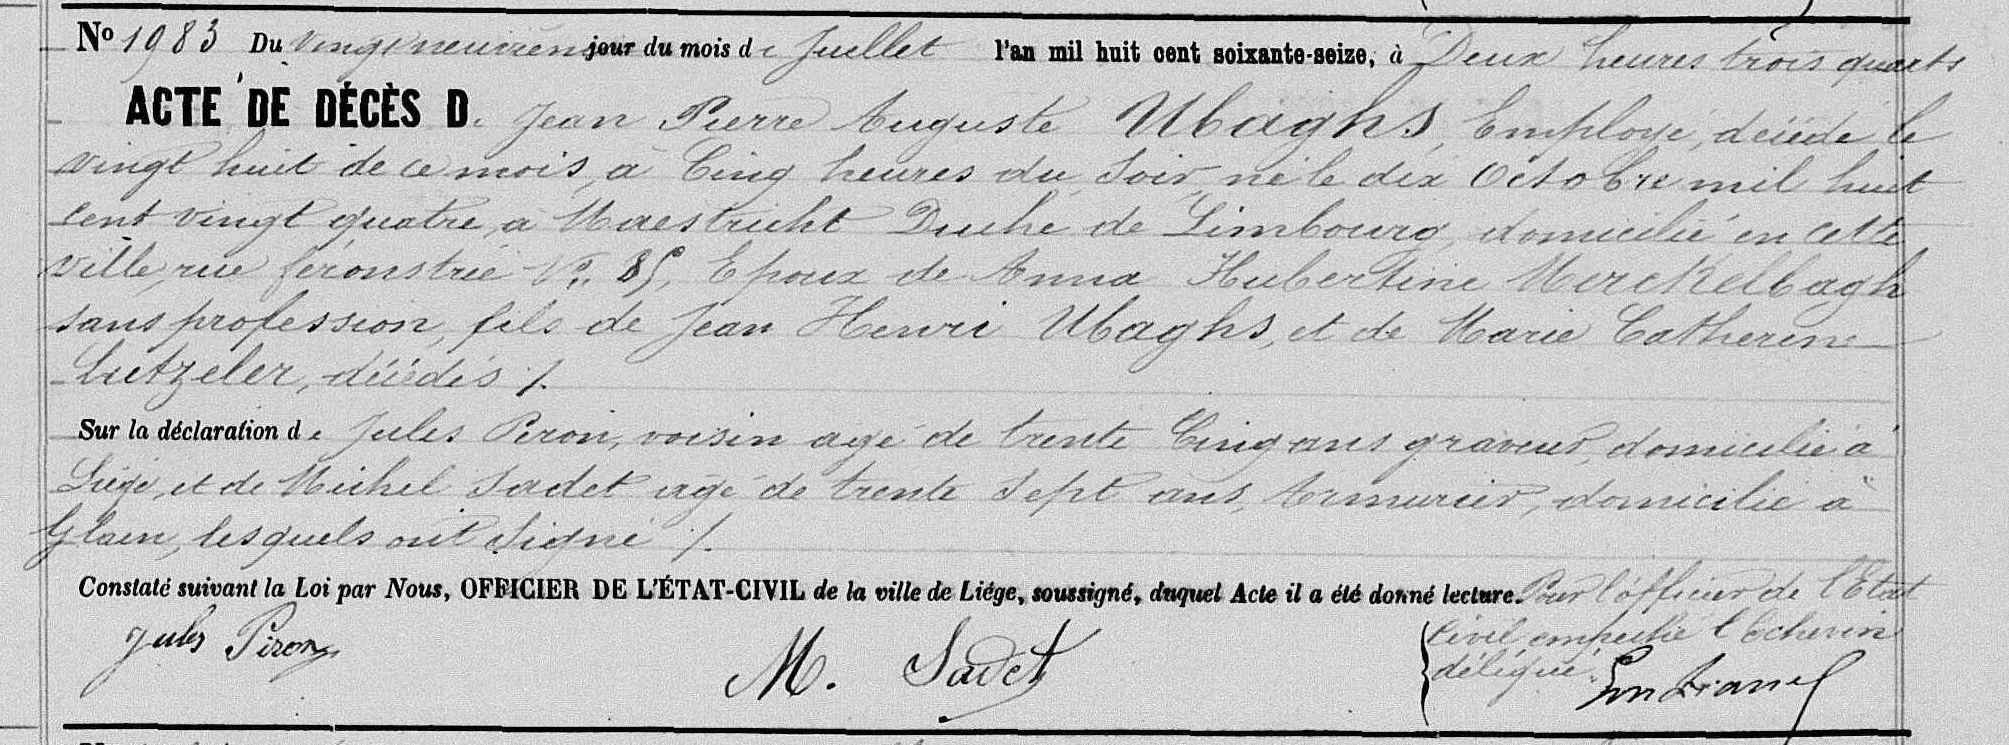 No 1983 Du vingt neuvième jour du mois de Juillet l'an mil huit cent soixante-seize, à Deux heures trois quarts
ACTE DE DÉCÈS De Jean Pierre Auguste Ubaghs, Employé, décédé le
vingt huit de ce mois, à Cinq heures du Soir, né le dix Octobre mil huit
cent vingt quatre, à Maestricht Duché de Limbourg, domicilié en cette
ville, rue féronstrée No. 85, Epoux de Anna Hubertine Merckelbagh
sans profession, fils de Jean Henri Ubaghs, et de Marie Catherine
Lutzeler, décédés ./.
Sur la déclaration de Jules Piron, voisin agé de trente Cinq ans graveur, domicilié à
Liége, et de Michel Sadet agé de trente Sept ans, Armurier, domicilié à
Glain, lesquels ont Signé ./.
Constaté suivant la Loi par Nous, OFFICIER DE L'ÉTAT-CIVIL de la ville de Liége, soussigné, duquel Acte il a été donné lecture. Pour l'officier de l'Etat
Civil empêché l'Echevin
délégué.
Jules Piron
M. Sadet